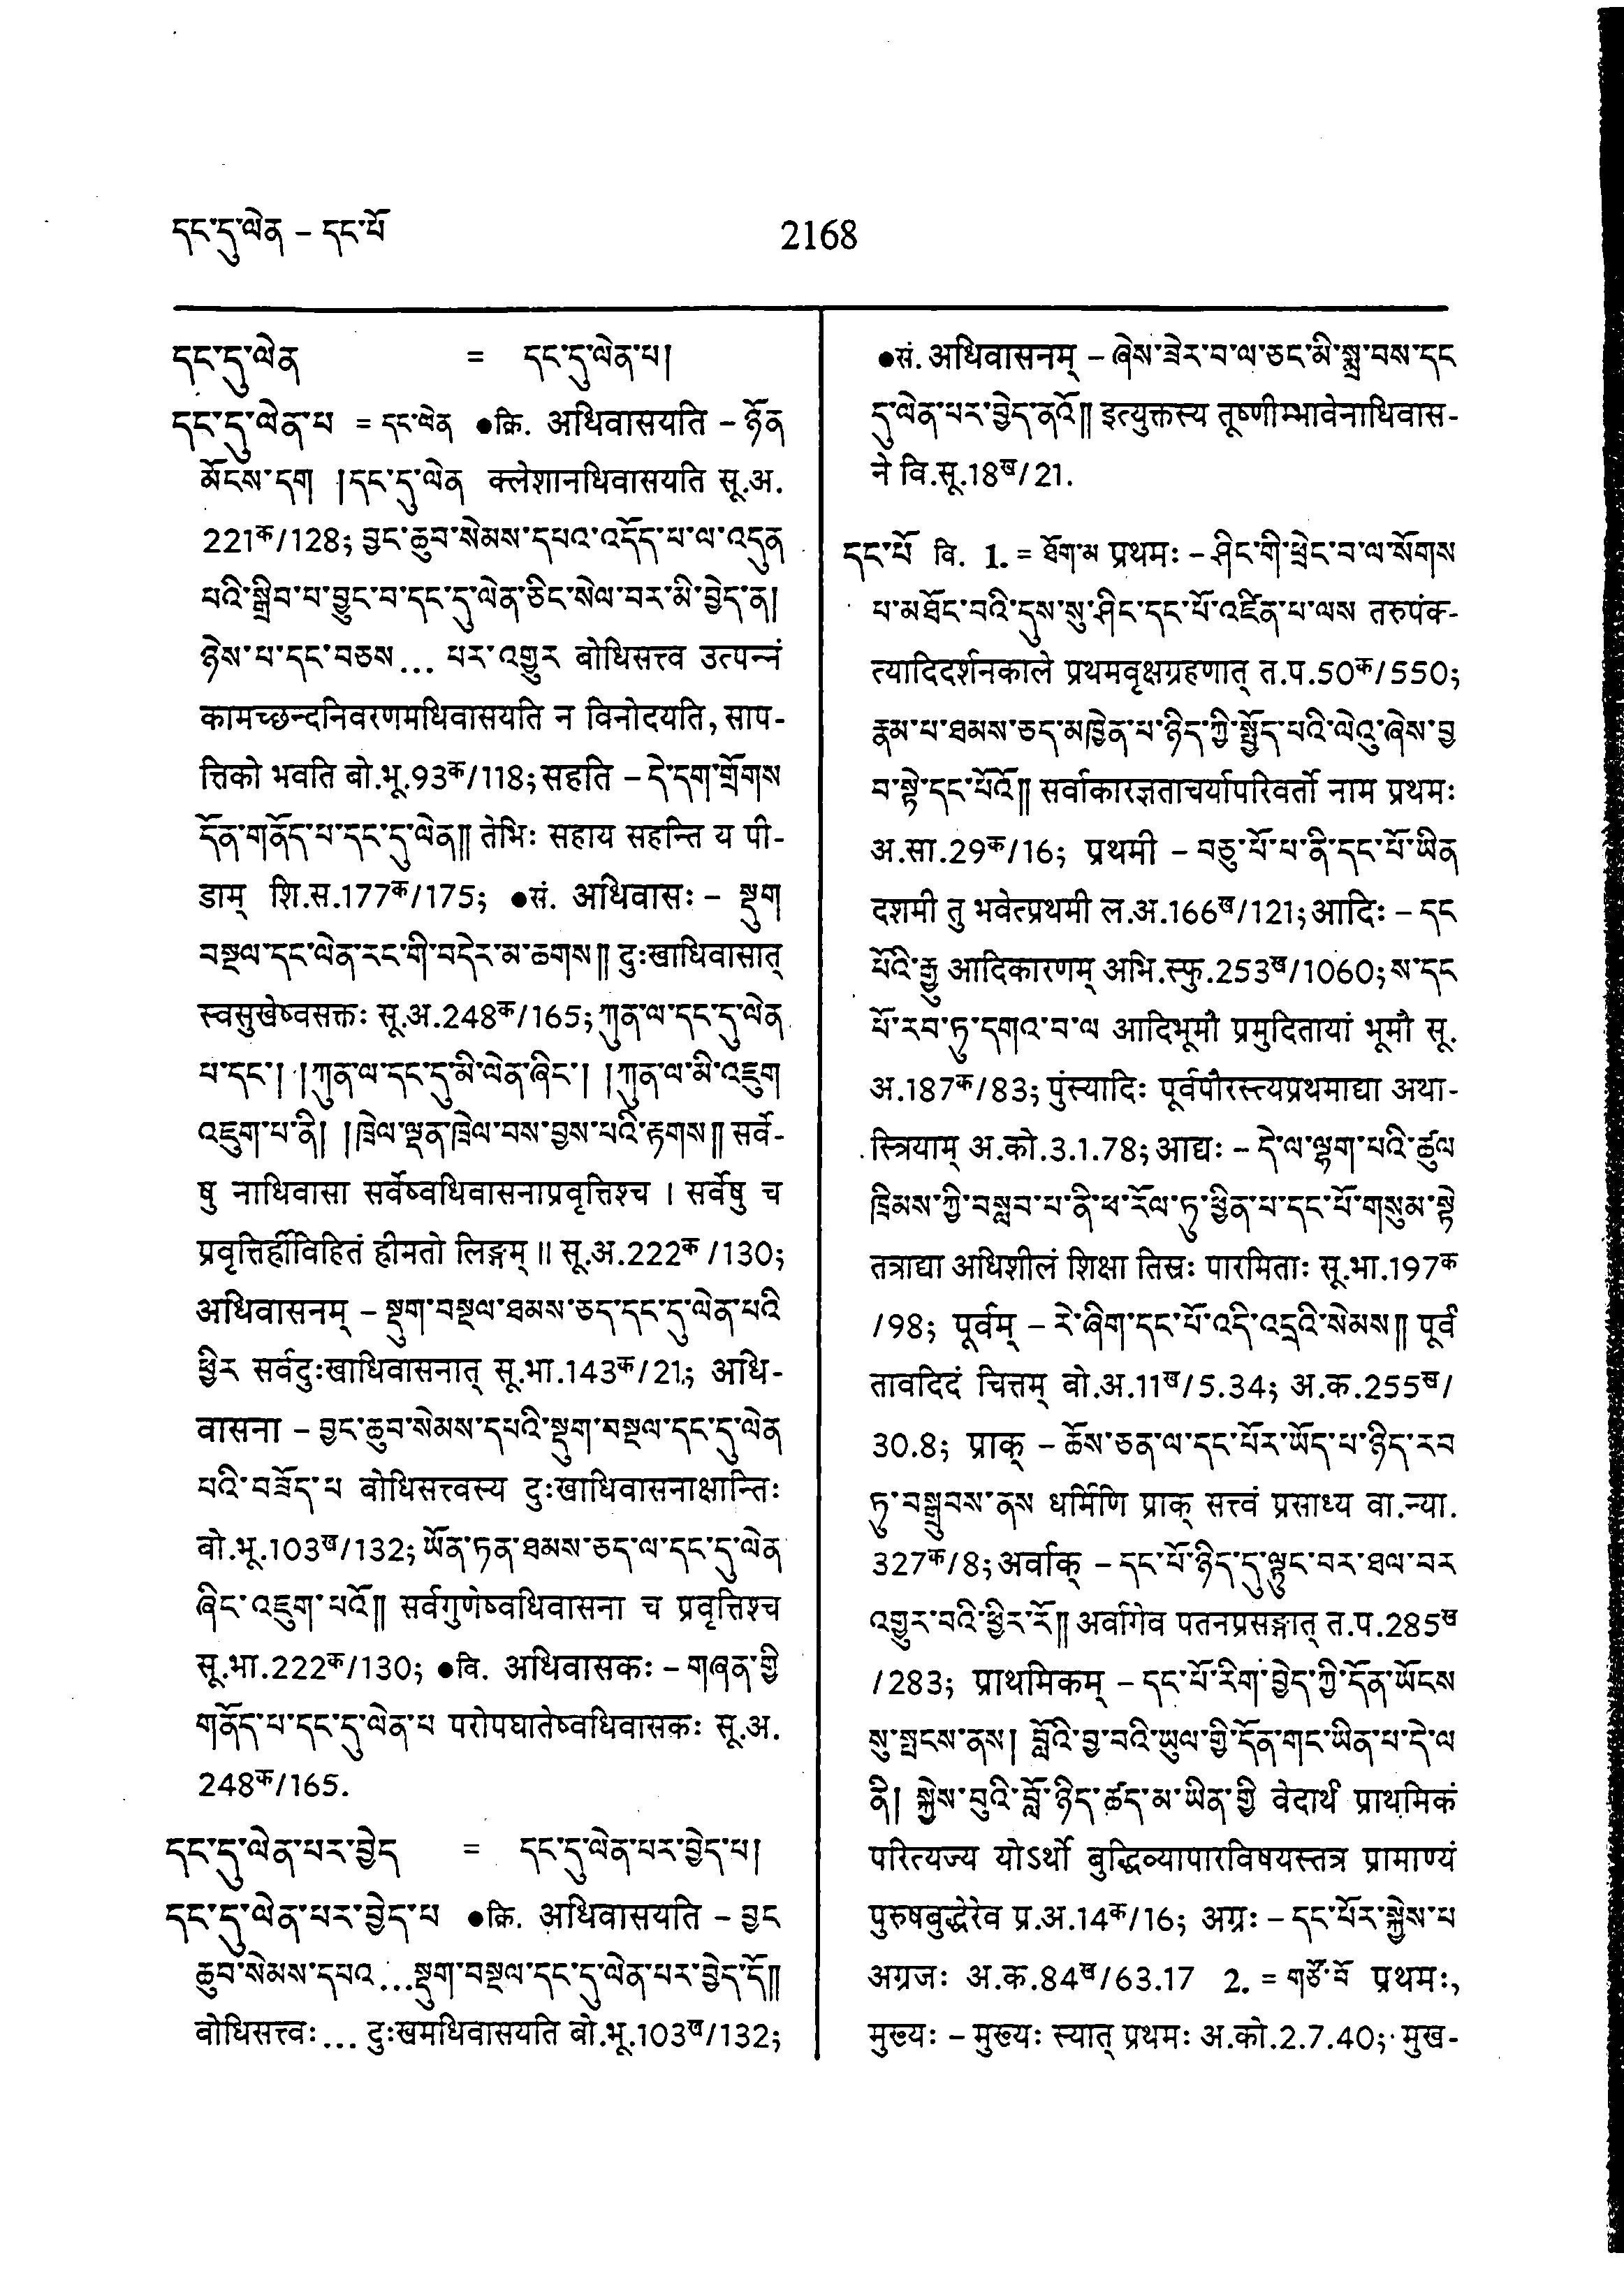 དང་དུ་ལེན – དང་པོ
2168
དང་དུ་ལེན = དང་དུ་ལེན་པ།
དང་དུ་ལེན་པ = དང་ལེན ●क्रि. अधिवासयति – ཉོན
མོངས་དག །དང་དུ་ལེན क्लेशानधिवासयति सू.अ.
221क/128; བྱང་ཆུབ་སེམས་དཔའ་འདོད་པ་ལ་འདུན
པའི་སྒྲིབ་པ་བྱུང་བ་དང་དུ་ལེན་ཅིང་སེལ་བར་མི་བྱེད་ན།
ཉེས་པ་དང་བཅས... པར་འགྱུར बोधिसत्त्व उत्पन्नं
कामच्छन्दनिवरणमधिवासयति न विनोदयति, साप-
त्तिको भवति बो.भू.93क/118; सहति – དེ་དག་གྲོགས
དོན་གནོད་པ་དང་དུ་ལེན༎ तेभिः सहाय सहन्ति य पी-
डाम् शि.स.177क/175; ●सं. अधिवासः – སྡུག
བསྔལ་དང་ལེན་རང་གི་བདེར་མ་ཆགས༎ दुःखाधिवासात्
स्वसुखेष्वसक्तः सू.अ.248क/165; ཀུན་ལ་དང་དུ་ལེན
པ་དང་། །ཀུན་ལ་དང་དུ་མི་ལེན་ཞིང་། །ཀུན་ལ་མི་འཇུག
འཇུག་པ་ནི། །ཁྲེལ་ལྡན་ཁྲེལ་བས་བྱས་པའི་རྟགས༎ सर्वे-
षु नाधिवासा सर्वेष्वधिवासनाप्रवृत्तिश्च । सर्वेषु च
प्रवृत्तिर्ह्रीविहितं ह्रीमतो लिङ्गम् ॥ सू.अ.222क/130;
अधिवासनम् – སྡུག་བསྔལ་ཐམས་ཅད་དང་དུ་ལེན་པའི
ཕྱིར सर्वदुःखाधिवासनात् सू.भा.143क/21; अधि-
वासना – བྱང་ཆུབ་སེམས་དཔའི་སྡུག་བསྔལ་དང་དུ་ལེན
པའི་བཟོད་པ बोधिसत्त्वस्य दुःखाधिवासनाक्षान्तिः
बो.भू.103ख/132; ཡོན་ཏན་ཐམས་ཅད་ལ་དང་དུ་ལེན
ཞིང་འཇུག་པའོ༎ सर्वगुणेष्वधिवासना च प्रवृत्तिश्च
सू.भा.222क/130; ●वि. अधिवासकः – གཞན་གྱི
གནོད་པ་དང་དུ་ལེན་པ परोपघातेष्वधिवासकः सू.अ.
248क/165.
དང་དུ་ལེན་པར་བྱེད = དང་དུ་ལེན་པར་བྱེད་པ།
དང་དུ་ལེན་པར་བྱེད་པ ●क्रि. अधिवासयति – བྱང
ཆུབ་སེམས་དཔའ...སྡུག་བསྔལ་དང་དུ་ལེན་པར་བྱེད་དོ༎
बोधिसत्त्वः... दुःखमधिवासयति बो.भू.103ख/132;
●सं. अधिवासनम् – ཞེས་ཟེར་བ་ལ་ཅང་མི་སྨྲ་བས་དང
དུ་ལེན་པར་བྱེད་ནའོ༎ इत्युक्तस्य तूष्णीम्भावेनाधिवास-
ने वि.सू.18ख/21.
དང་པོ वि. 1. = ཐོག་མ प्रथमः – ཤིང་གི་ཕྲེང་བ་ལ་སོགས
པ་མཐོང་བའི་དུས་སུ་ཤིང་དང་པོ་འཛིན་པ་ལས तरुपंक-
त्यादिदर्शनकाले प्रथमवृक्षग्रहणात् त.प.50क/550;
རྣམ་པ་ཐམས་ཅད་མཁྱེན་པ་ཉིད་ཀྱི་སྤྱོད་པའི་ལེའུ་ཞེས་བྱ
བ་སྟེ་དང་པོའོ༎ सर्वाकारज्ञताचर्यापरिवर्तो नाम प्रथमः
अ.सा.29क/16; प्रथमी – བཅུ་པོ་པ་ནི་དང་པོ་ཡིན
दशमी तु भवेत्प्रथमी ल.अ.166ख/121; आदिः – དང
པོའི་རྒྱུ आदिकारणम् अभि.स्फु.253ख/1060; ས་དང
པོ་རབ་ཏུ་དགའ་བ་ལ आदिभूमौ प्रमुदितायां भूमौ सू.
अ.187क/83; पुंस्यादिः पूर्वपौरस्त्यप्रथमाद्या अथा-
स्त्रियाम् अ.को.3.1.78; आद्यः – དེ་ལ་ལྷག་པའི་ཚུལ
ཁྲིམས་ཀྱི་བསླབ་པ་ནི་ཕ་རོལ་ཏུ་ཕྱིན་པ་དང་པོ་གསུམ་སྟེ
तत्राद्या अधिशीलं शिक्षा तिस्रः पारमिताः सू.भा.197क
/98; पूर्वम् – རེ་ཞིག་དང་པོ་འདི་འདྲའི་སེམས༎ पूर्वं
तावदिदं चित्तम् बो.अ.11ख/5.34; अ.क.255ख/
30.8; प्राक् – ཆོས་ཅན་ལ་དང་པོར་ཡོད་པ་ཉིད་རབ
ཏུ་བསྒྲུབས་ནས धर्मिणि प्राक् सत्त्वं प्रसाध्य वा.न्या.
327क/8; अर्वाक् – དང་པོ་ཉིད་དུ་ལྟུང་བར་ཐལ་བར
འགྱུར་བའི་ཕྱིར་རོ༎ अर्वागेव पतनप्रसङ्गात् त.प.285ख
/283; प्राथमिकम् – དང་པོ་རིག་བྱེད་ཀྱི་དོན་ཡོངས
སུ་སྤངས་ནས། བློའི་བྱ་བའི་ཡུལ་གྱི་དོན་གང་ཡིན་པ་དེ་ལ
ནི། སྐྱེས་བུའི་བློ་ཉིད་ཚད་མ་ཡིན་གྱི वेदार्थं प्राथमिकं
परित्यज्य योऽर्थो बुद्धिव्यापारविषयस्तत्र प्रामाण्यं
पुरुषबुद्धेरेव प्र.अ.14क/16; अग्रः – དང་པོར་སྐྱེས་པ
अग्रजः अ.क.84ख/63.17 2. = གཙོ་བོ प्रथमः,
मुख्यः – मुख्यः स्यात् प्रथमः अ.को.2.7.40; मुख-